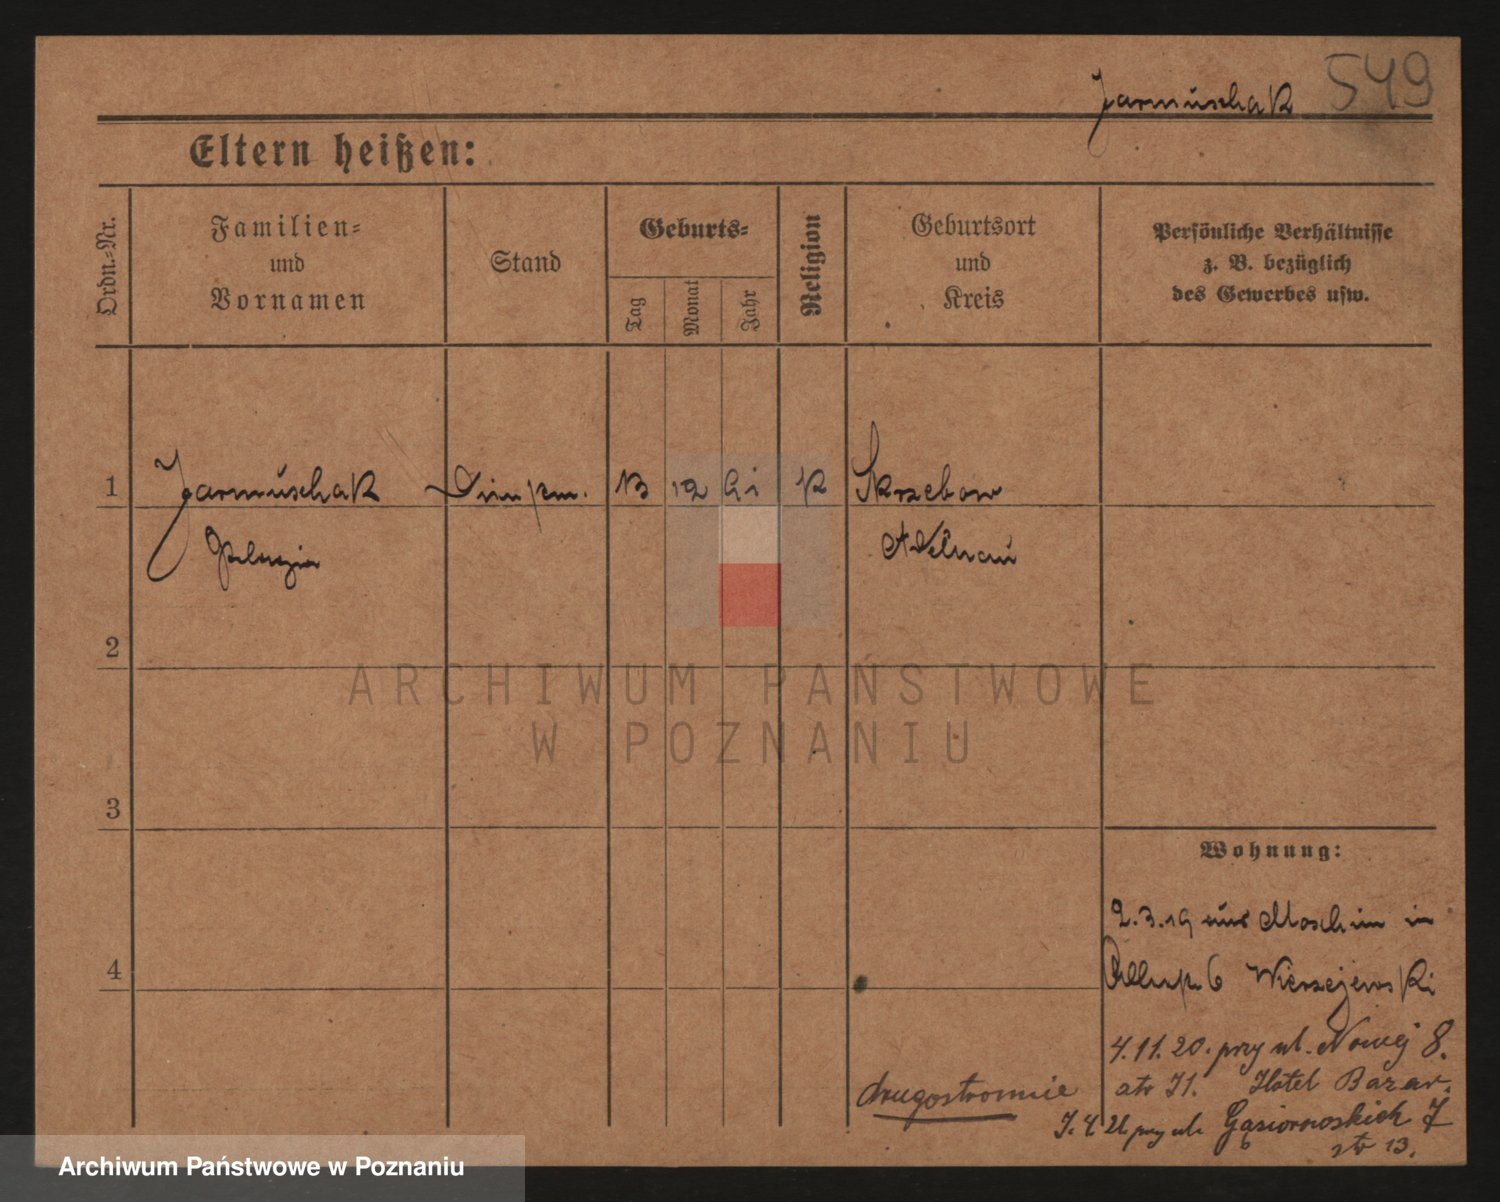 Jarmuschak 549
Eltern heißen:
Ordn.-Nr.
Familien-
und
Vornamen
Stand
Geburts-
Tag
Monat
Jahr
Religion
Geburtsort
und
Kreis
Persönliche Verhältnisse
z. B. bezüglich
des Gewerbes usw.
1 Jarmuschak 12 K Skrzebow
Pelagia Adelnau
2
3
4
Wohnung:
2.3.19 aus Moschin in
6 Wierzejewski
4.11.20. przy ul. Nowej 8.
Hotel Bazar.
drugostronnie
przy ul. Gąsiorowskich 7
13.
ARCHIWUM PAŃSTWOWE
W POZNANIU
Archiwum Państwowe w Poznaniu